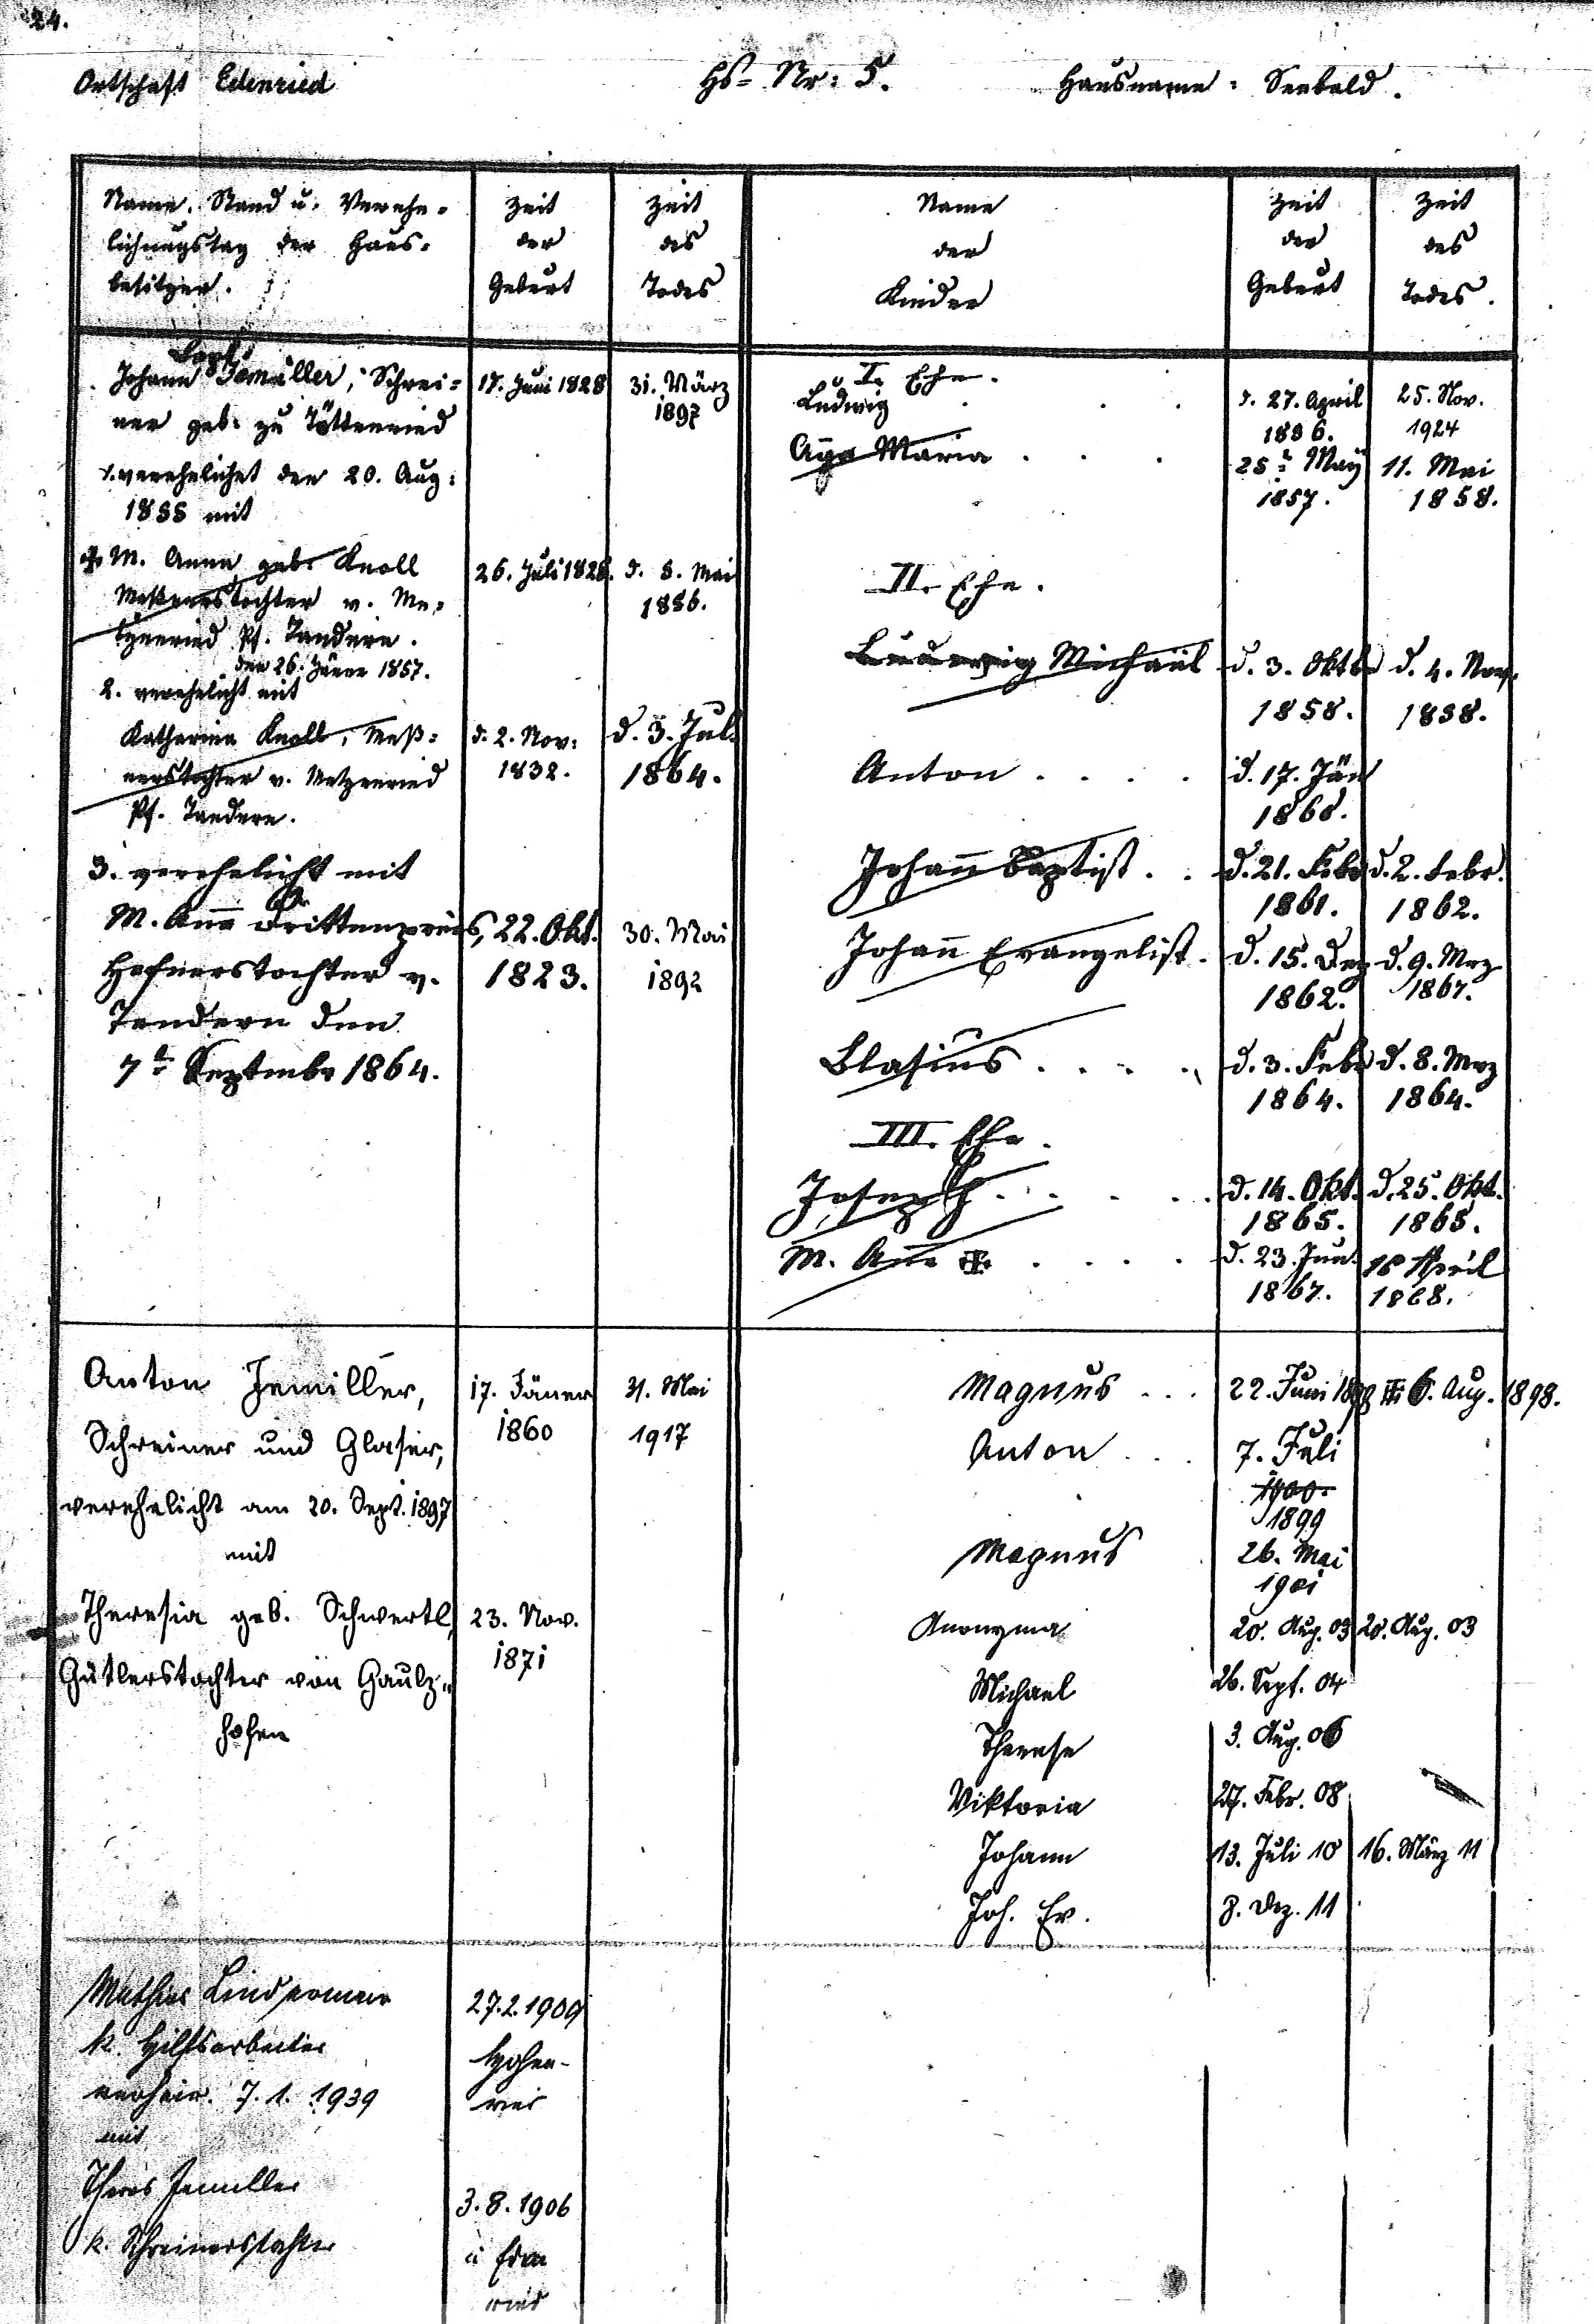 24.
Ortschaft Edenried
Hs= Nr: 5.
Hausname: Seebald.
Name, Stand u. Verehe=
lichungstag der Haus=
besitzer.
Zeit
der
Geburt
Zeit
des
Todes
Name
der
Kinder
Zeit
der
Geburt
Zeit
des
Todes.
Johann Jemüller, Schrei=
ner geb. zu Töttenried
1. verehelichet den 20. Aug:
1855 mit
17. Juni 1828
31. März
1897
M. Anna geb. Knoll
Meßnerstochter v. Me=
tzenried Pf. Tandern.
26. Juli 1828.
d. 8. Mai
1856.
den 26. Jäner 1857.
2. verehelicht mit
Katharina Knoll, Meß=
nerstochter v. Metzenried
Pf. Tandern.
d. 2. Nov:
1832.
d. 3. Jul.
1864.
3. verehelicht mit
M. Anna Drittenpreis,
Hafnerstochter v.
Tandern den
7t Septmbr 1864.
22. Okt.
1823.
30. Mai
1892
I. Ehe.
Ludwig . . .
d. 27. April
1856.
25. Nov.
1924
Maria . . .
25t May
1857.
11. Mai
1858.
II. Ehe.
Ludwig Michael
d. 3. Oktb
1858.
d. 4. Nov.
1858.
Anton . . . .
d. 17. Jän
1860.
Johann Baptist . .
d. 21. Febr
1861.
d. 2. Febr.
1862.
Johann Evangelist .
d. 15. Dez
1862.
d. 9. Mrz
1867.
Blasius . . . .
d. 3. Febr
1864.
d. 8. Mrz
1864.
III. Ehe.
Joseph . . . . .
d. 14. Okt.
1865.
d. 25. Okt.
1865.
M. Anna . . . .
d. 23. Jun.
1867.
16 April
1868.
Anton Jemiller,
Schreiner und Glaser,
verehelicht am 20. Sept. 1897
mit
17. Jäner
1860
31. Mai
1917
Theresia geb. Schwertl,
Gütlerstochter von Gaulz=
hofen
23. Nov.
1871
Magnus . . .
22. Juni 1898
6. Aug. 1898.
Anton . . .
7. Juli
1900.
1899
Magnus
26. Mai
1901
Anonyma
20. Aug. 03
20. Aug. 03
Michael
26. Sept. 04
Therese
3. Aug. 06
Viktoria
27. Febr. 08
Johann
13. Juli 10
16. März 11
Joh. Ev.
8. Dez. 11
Mathias
k. Hilfsarbeiter
verheir. 7. 1. 1939
mit
27.2.1909
Theres Jemiller
k. Schreinerstochter
3. 8. 1906